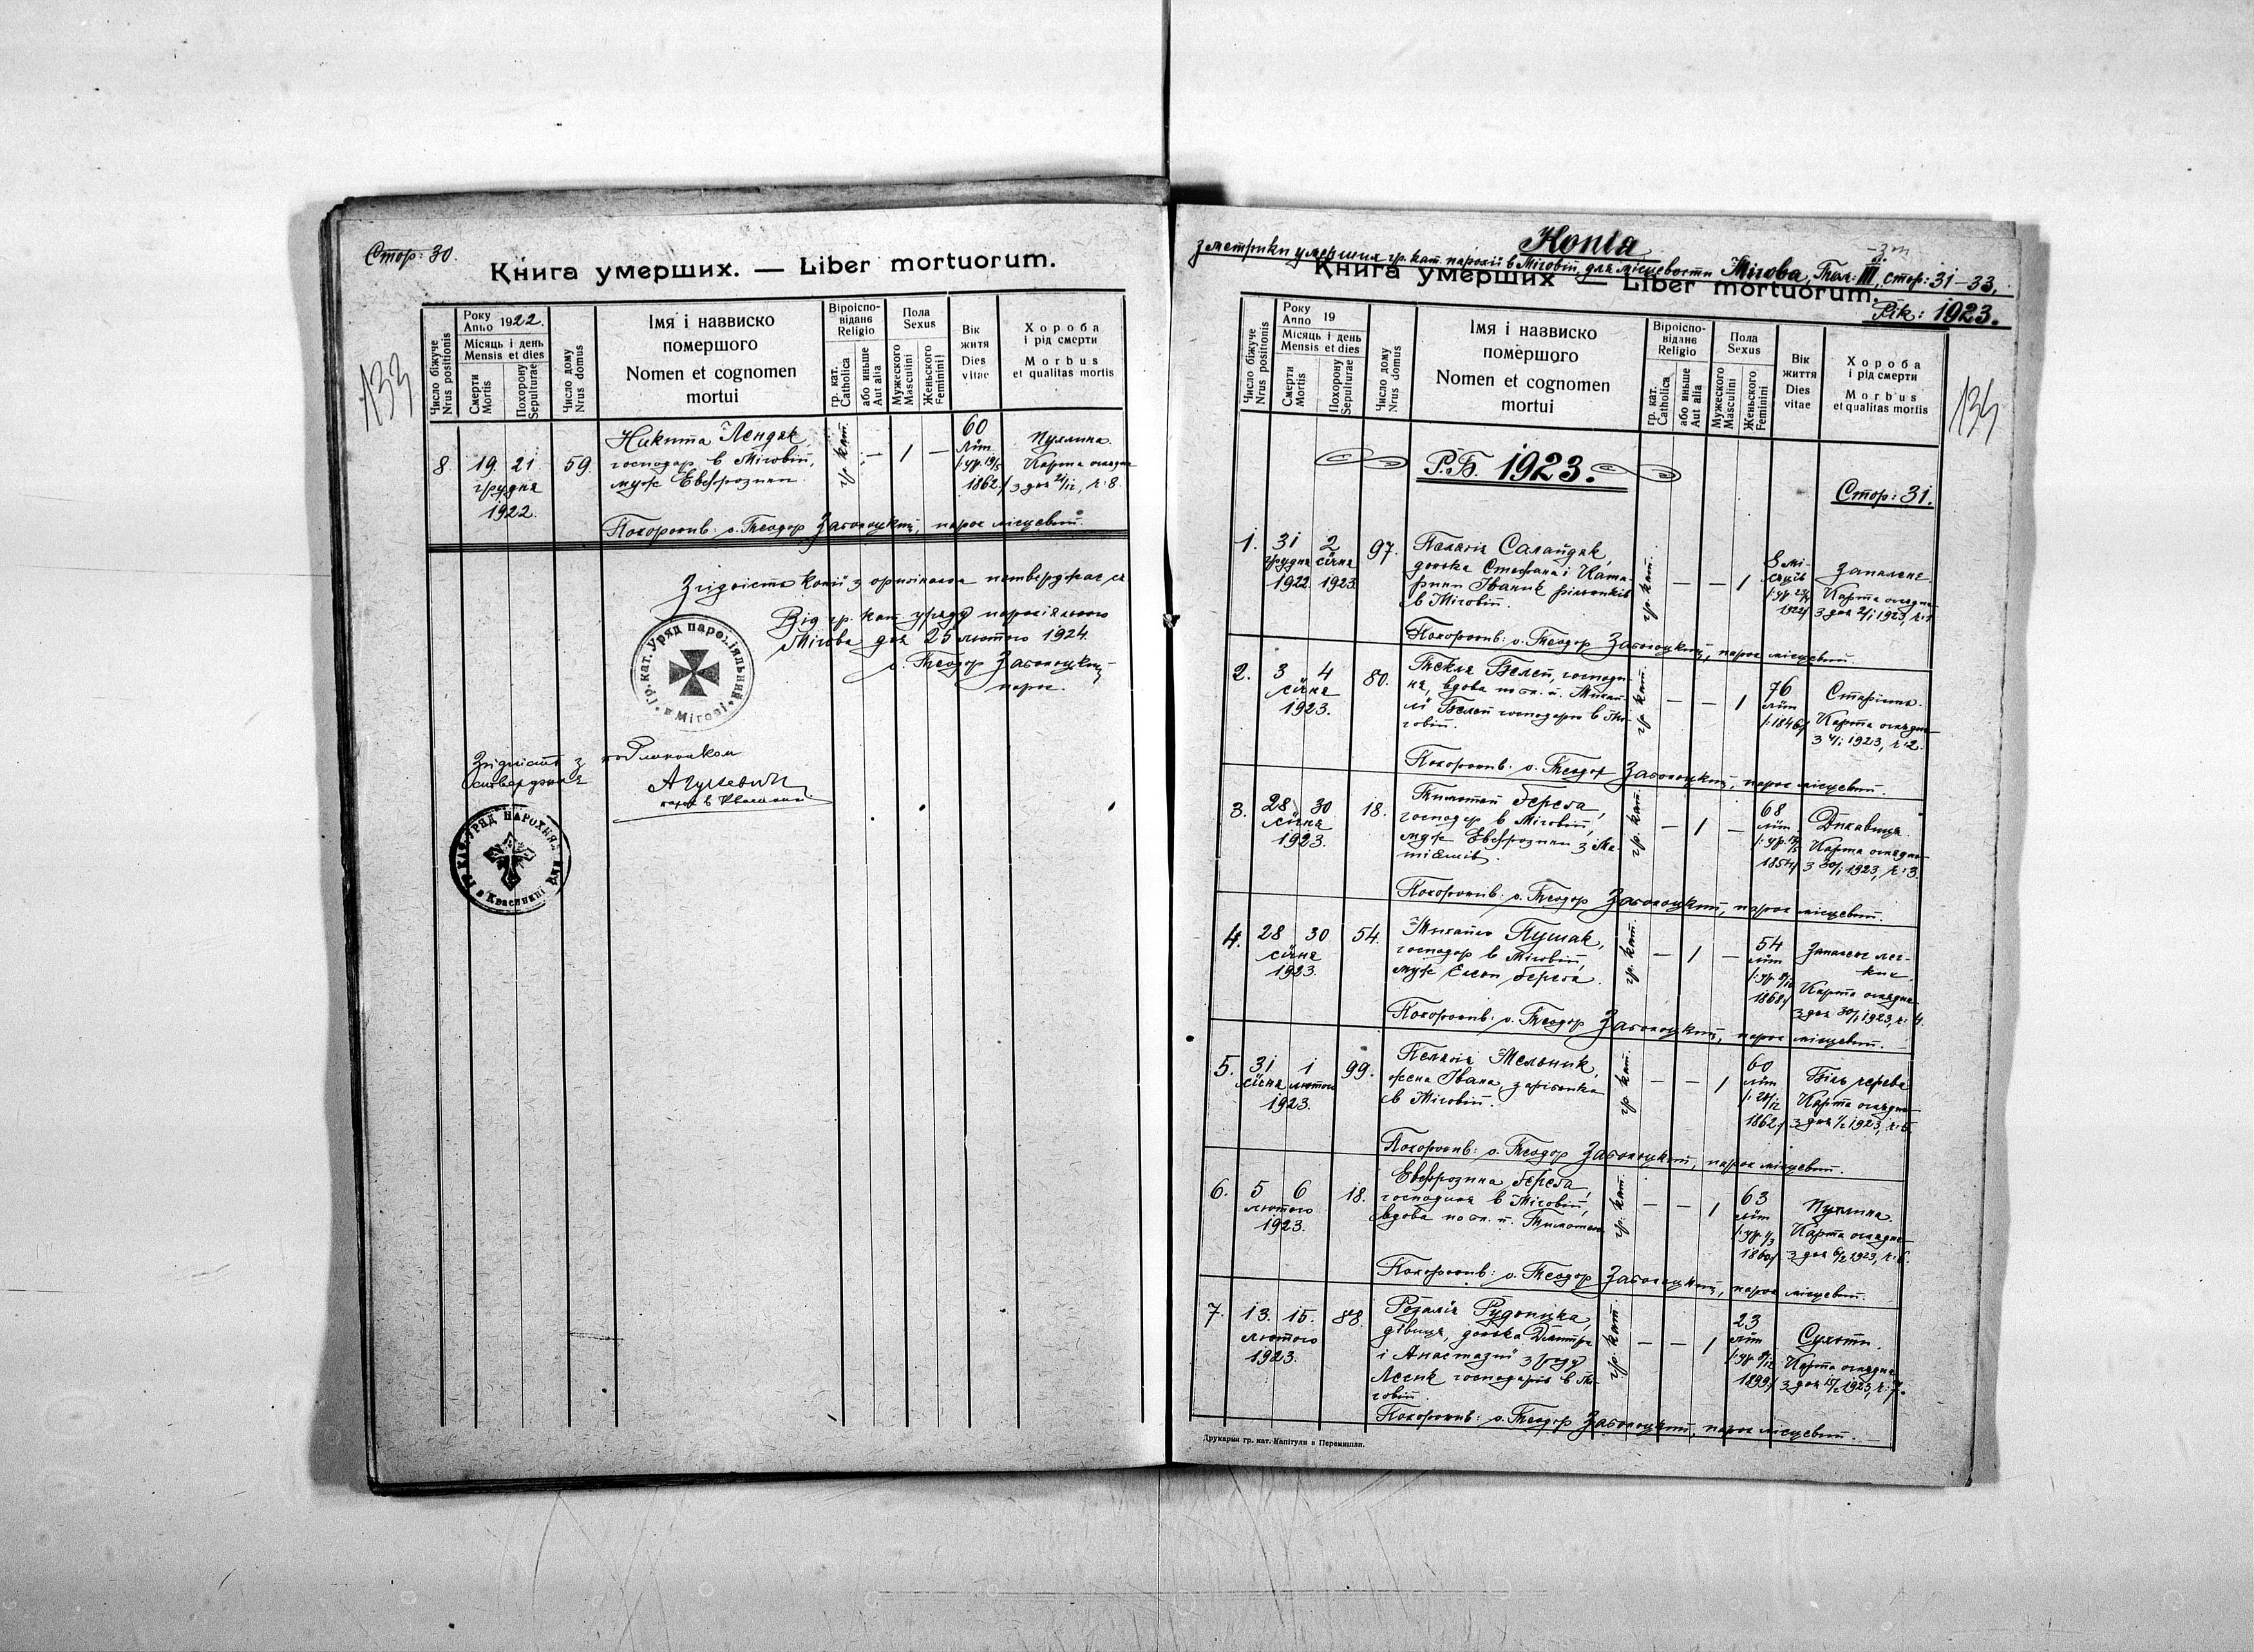 Стор: 30.
Книга умерших. — Liber mortuorum.
133
Число біжуче
Nrus positionis
Року
Anno 1922.
Місяць і день
Mensis et dies
Смерти
Mortis
Похорону
Sepulturae
Число дому
Nrus domus
Імя і назвиско
померщого
Nomen et cognomen
mortui
Віроіспо-
відане
Religio
гр. кат.
Catholica
або иньше
Aut alia
Пола
Sexus
Мужеского
Masculini
Женьского
Feminini
Вік
житя
Dies
vitae
Хороба
і рід смерти
Morbus
et qualitas mortis
8. 19. 21 грудня 1922. 59.
Никита Лендяк,
господар в Міговій,
муж Евфрозини.
гр. кат. — 1 —
60
літ
/: ур. 19/5
1862 :/
Пухлина.
Карта оглядин
з дня 21/12, ч: 8.
Похоронив: о. Теодор Заболоцкий, парох місцевий.
Згідність копії з оригіналом потверджає ся
Від гр. кат. уряду парохіяльного
Мігова дня 25 лютого 1924.
о. Теодор Заболоцкий
парох.
Гр. кат. Уряд парохіяльний в Мігові
Згідність з
стверджує
в Квасинині
Копія
з метрики умерших гр. кат. парохії в Міговій, для місцевости Мігова, Том: III, стор: 31–33.
Книга умерших — Liber mortuorum.
Рік: 1923.
134
Число біжуче
Nrus positionis
Року
Anno 19
Місяць і день
Mensis et dies
Смерти
Mortis
Похорону
Sepulturae
Число дому
Nrus domus
Імя і назвиско
померщого
Nomen et cognomen
mortui
Віроіспо-
відане
Religio
гр. кат.
Catholica
або иньше
Aut alia
Пола
Sexus
Мужеского
Masculini
Женьского
Feminini
Вік
життя
Dies
vitae
Хороба
і рід смерти
Morbus
et qualitas mortis
Р.Б. 1923.
Стор: 31.
1. 31 грудня 1922 2 січня 1923 97.
Пелагія Салайдяк,
донька Стефана і Ката-
рини Іваник рільників
в Міговій.
гр. кат. — — 1
8 мі-
сяців
Запалене.
Карта оглядин
з дня 2/1 1923, ч: 1
Похоронив: о. Теодор Заболоцкий, парох місцевий.
2. 3 4 січня 1923. 80.
Текля Велеп, господи-
ня, вдова по бл. п. Михай-
лі Велеп господари в Мі-
говій.
гр. кат. — — 1
76
літ
/: 1846 :/
Старість.
Карта оглядин
з 4/1 1923, ч: 2.
Похоронив: о. Теодор Заболоцкий, парох місцевий.
3. 28 30 січня 1923. 18.
Тимотей Береза,
господар в Міговій,
муж Евфрозини з
гр. кат. — 1 —
68
літ
1854 :/
Дихавиця.
Карта оглядин
з 30/1 1923, ч: 3.
Похоронив: о. Теодор Заболоцкий, парох місцевий.
4. 28 30 січня 1923. 54.
Михайло Пушак,
господар в Міговій,
муж Елени Береза.
гр. кат. — 1 —
54
літ
/: ур. 8/12
1868 :/
Запалене лег-
ких.
Карта оглядин
з дня 30/1 1923, ч: 4.
Похоронив: о. Теодор Заболоцкий, парох місцевий.
5. 31 січня 1 лютого 1923. 99.
Пелагія Мельник,
жена Івана, зарібника
в Міговій.
гр. кат. — — 1
60
літ
1862 :/
Біль черева
Карта оглядин
з дня 1/2 1923, ч: 5.
Похоронив: о. Теодор Заболоцкий, парох місцевий.
6. 5 6 лютого 1923. 18.
Евфрозина Береза,
господиня в Міговій,
вдова по бл. п. Тимотею
гр. кат. — — 1
63
літ
/: ур. 1/3
1860 :/
Пухлина.
Карта оглядин
з дня 6/2 1923, ч: 6.
Похоронив: о. Теодор Заболоцкий, парох місцевий.
7. 13. 15. лютого 1923. 88.
Розалія Рудоницка,
дівиця, донька Дмитра
і Анастазиї з роду
Лесик господарів в Мі-
говій.
гр. кат. — — 1
23
літ
/: ур. 8/12
1899 :/
Сухоти.
Карта оглядин
з дня 15/2 1923, ч: 7.
Похоронив: о. Теодор Заболоцкий, парох місцевий.
Друкарня гр. кат. Капітули в Перемишли.